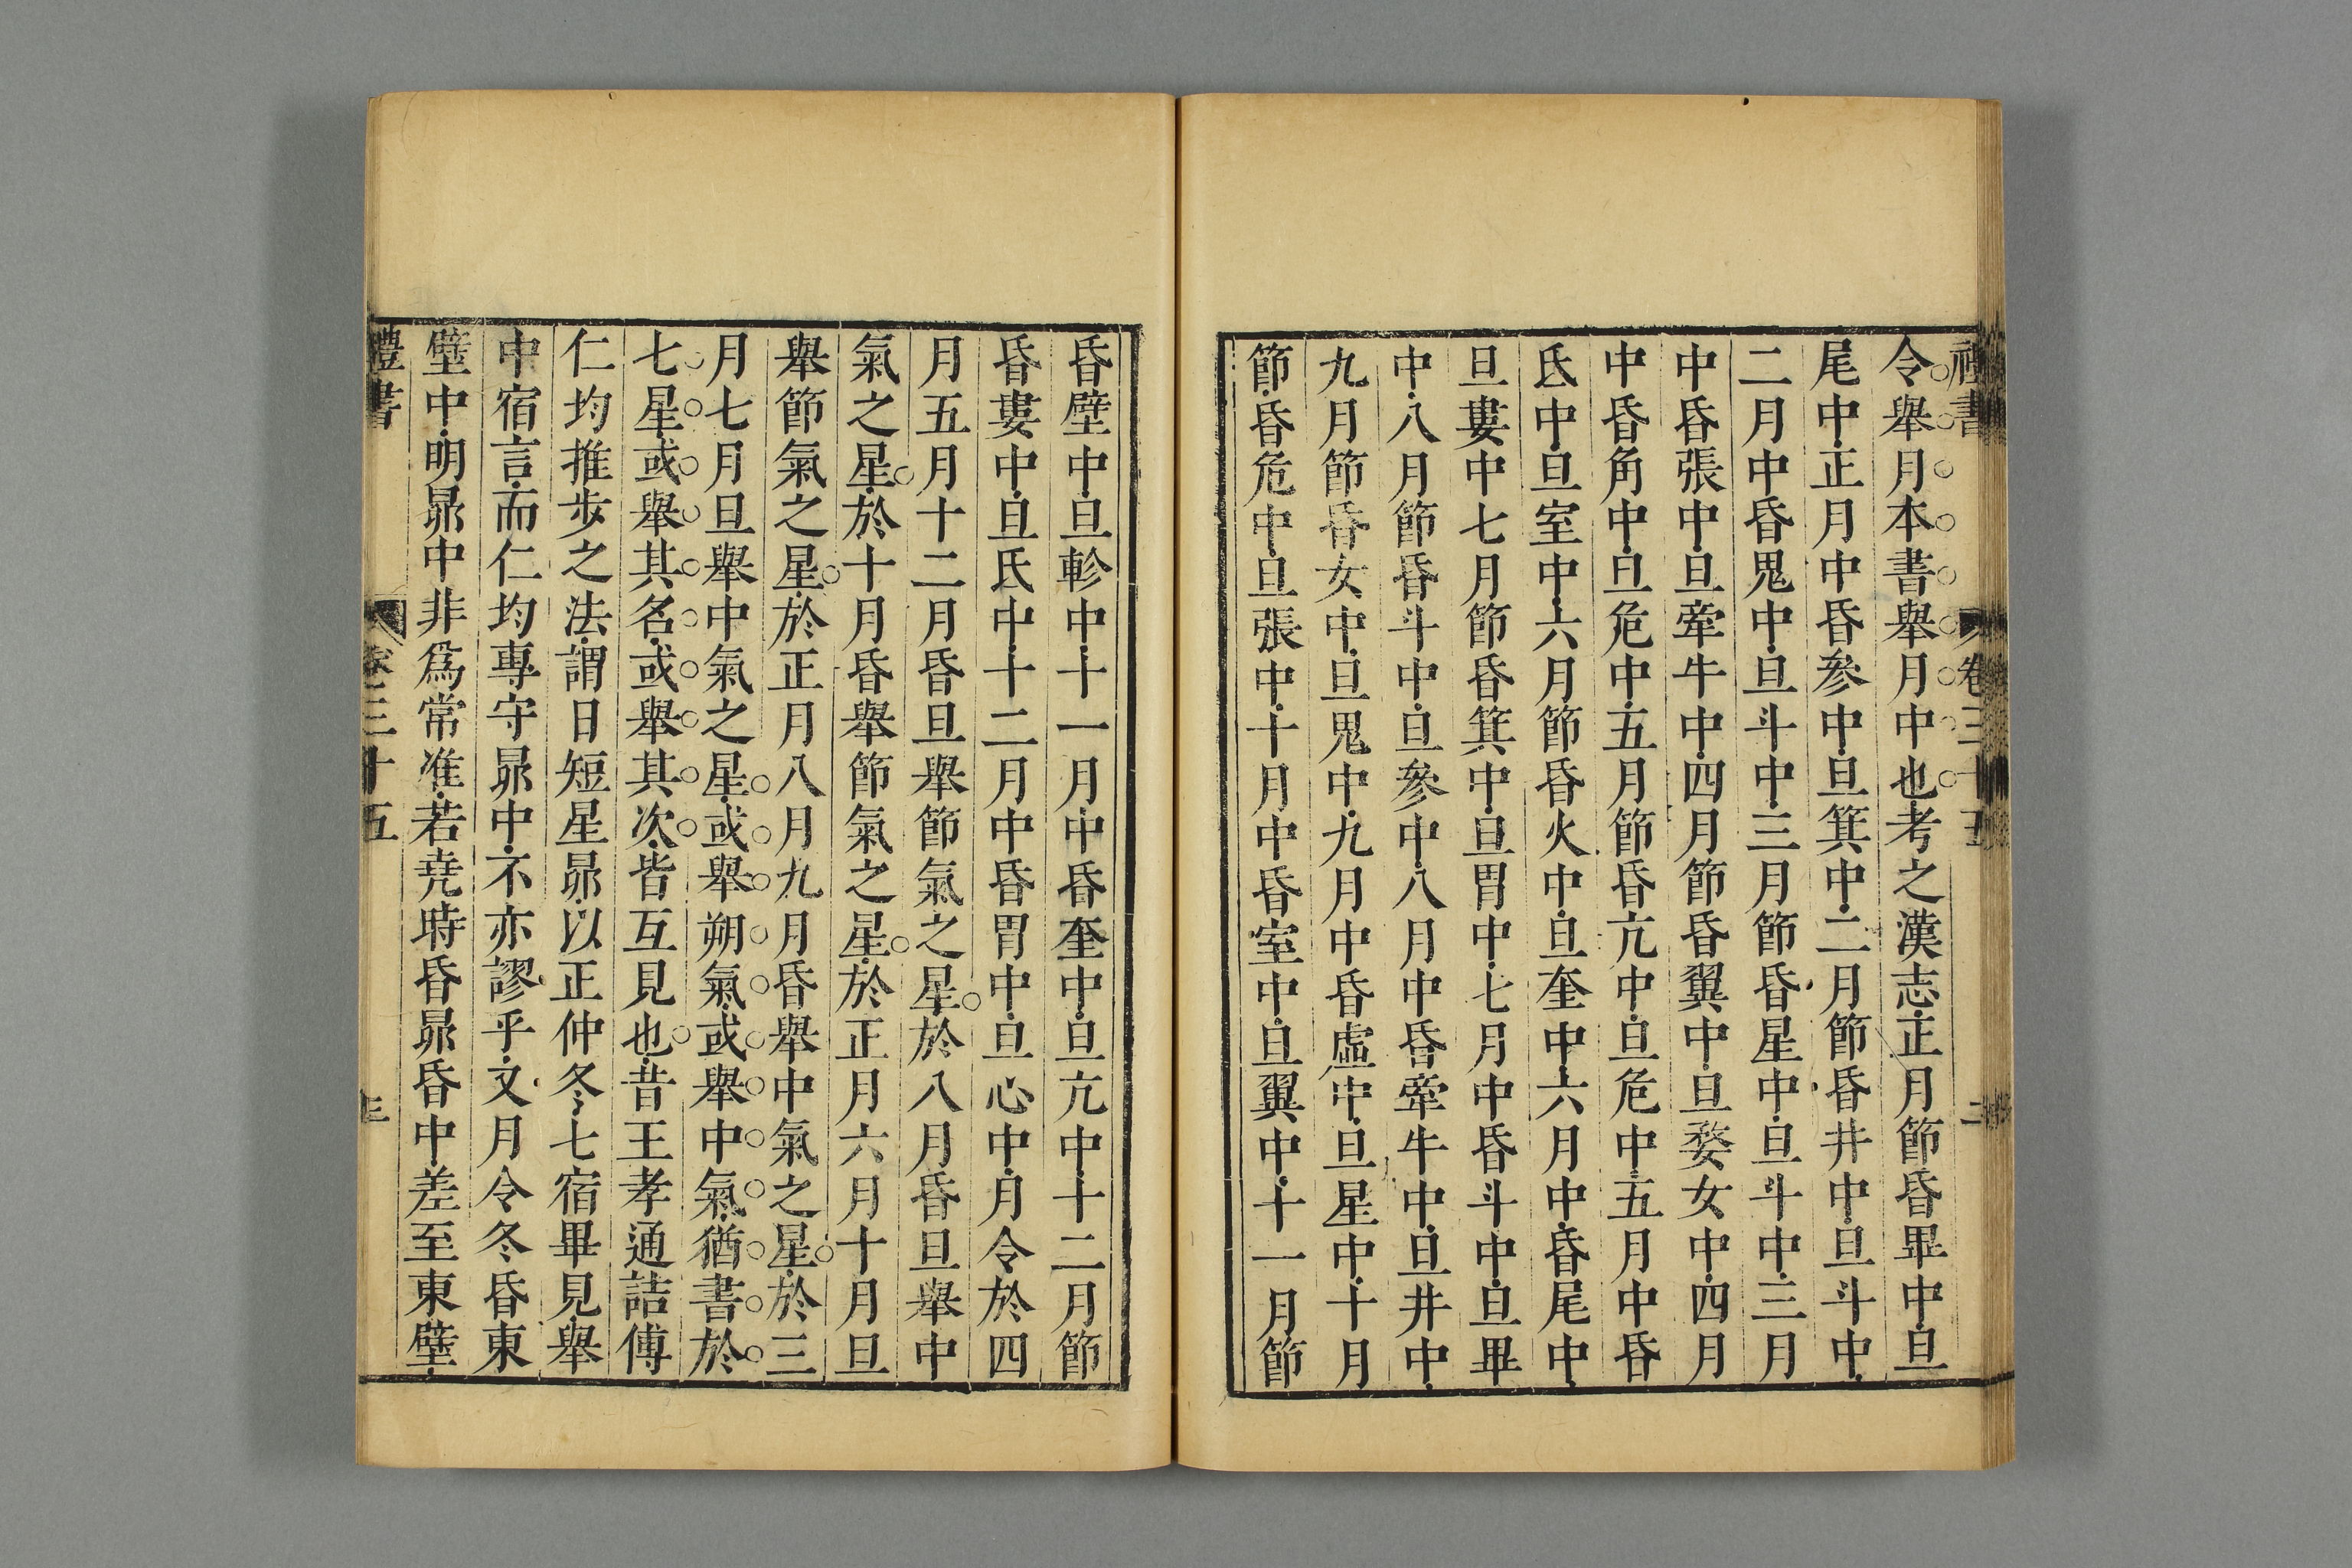 禮書 卷三十五 二
令舉月本書舉月中也考之漢志正月節昏畢中旦
尾中正月中昏參中旦箕中二月節昏井中旦斗中
二月中昏鬼中旦斗中三月節昏星中旦斗中三月
中昏張中旦牽牛中四月節昏翼中旦婺女中四月
中昏角中旦危中五月節昏亢中旦危中五月中昏
氐中旦室中六月節昏火中旦奎中六月中昏尾中
旦婁中七月節昏箕中旦胃中七月中昏斗中旦畢
中八月節昏斗中旦參中八月中昏牽牛中旦井中
九月節昏女中旦鬼中九月中昏虛中旦星中十月
節昏危中旦張中十月中昏室中旦翼中十一月節
昏壁中旦軫中十一月中昏奎中旦亢中十二月節
昏婁中旦氐中十二月中昏胃中旦心中月令於四
月五月十二月昏旦舉節氣之星於八月昏旦舉中
氣之星於十月昏舉節氣之星於正月六月十月旦
舉節氣之星於正月八月九月昏舉中氣之星於三
月七月旦舉中氣之星或舉朔氣或舉中氣猶書於
七星或舉其名或舉其次皆互見也昔王孝通詰傅
仁均推步之法謂日短星昴以正仲冬七宿畢見舉
中宿言而仁均專守昴中不亦謬乎文月令冬昏東
壁中明昴中非爲常准若堯時昏昴昏中差至東壁
禮書 卷三十五